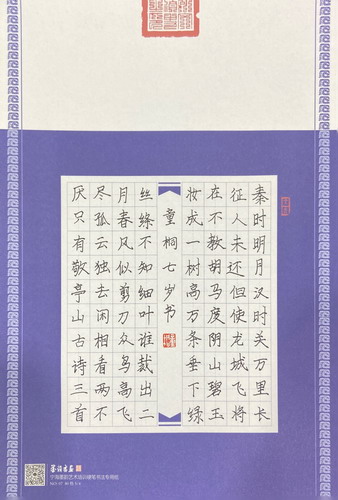 秦时明月汉时关万里长
征人未还但使龙城飞将
在不教胡马度阴山碧玉
妆成一树高万条垂下绿
童桐七岁书
丝绦不知细叶谁裁出二
月春风似剪刀众鸟高飞
尽孤云独去闲相看两不
厌只有敬亭山古诗三首
艺术培训硬笔书法专用纸